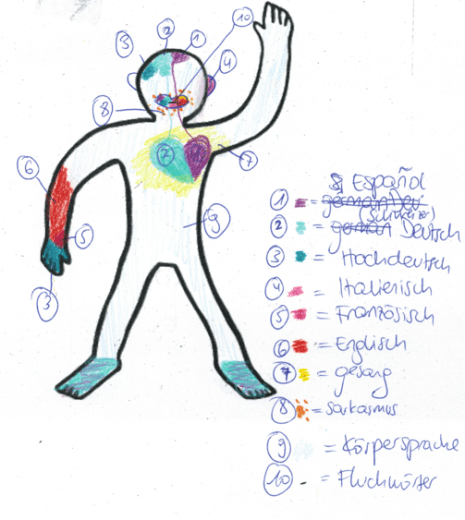 10
2
1
3
4
8
7
7
6
9
5
3
Español
1 =
(Schweizer)
2 = german Deutsch
3 = Hochdeutsch
4 = Italienisch
5 = Französisch
6 = Englisch
7 = gesang
8 = sarkasmus
9 = Körpersprache
10 - = Fluchwörter